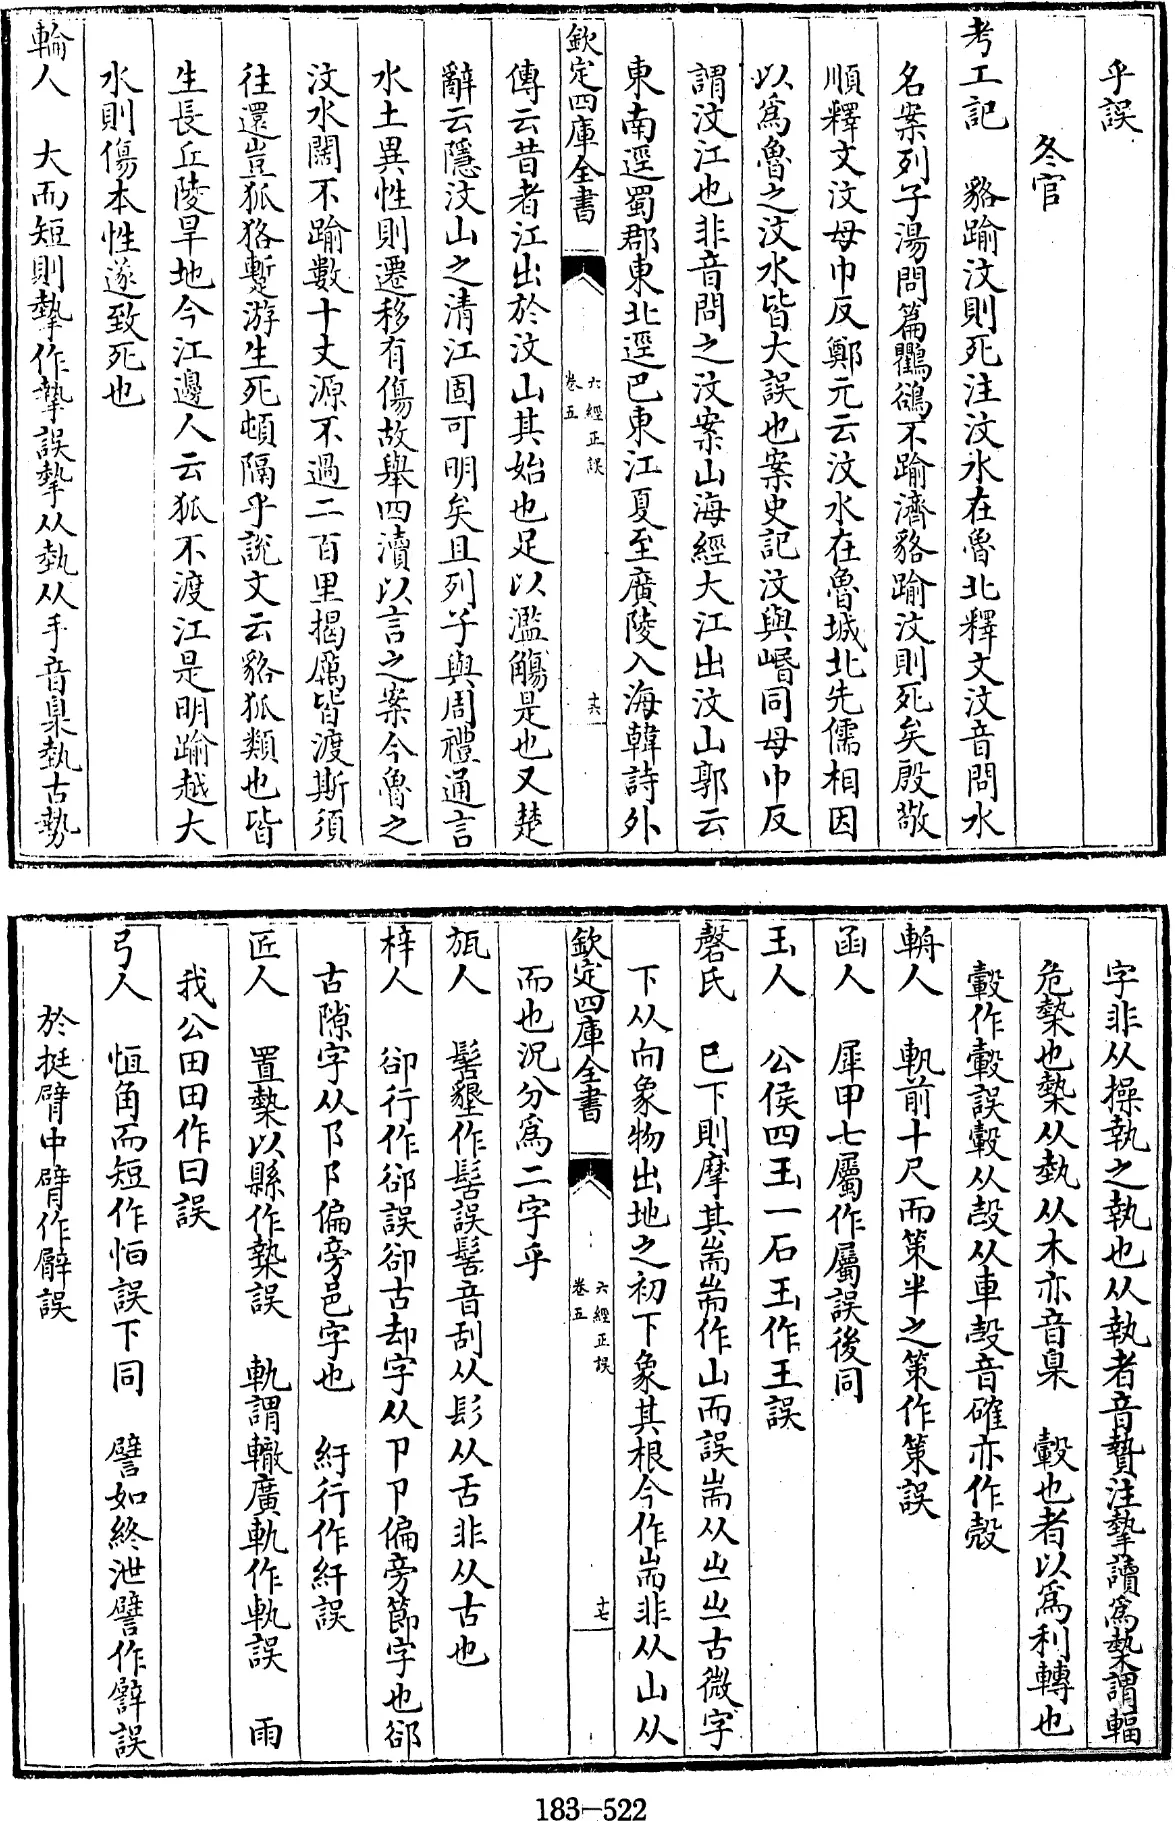 乎誤
冬官
考工記　貉踰汶則死注汶水在魯北釋文汶音問水
名案列子湯問篇鸜鵒不踰濟貉踰汶則死矣殷敬
順釋文汶母巾反鄭元云汶水在魯城北先儒相因
以爲魯之汶水皆大誤也案史記汶與㟭同母巾反
謂汶江也非音問之汶案山海經大江出汶山郭云
東南逕蜀郡東北逕巴東江夏至廣陵入海韓詩外
欽定四庫全書　六經正誤卷五　十六
傳云昔者江出於汶山其始也足以濫觴是也又楚
辭云隱汶山之清江固可明矣且列子與周禮通言
水土異性則遷移有傷故舉四瀆以言之案今魯之
汶水闊不踰數十丈源不過二百里揭厲皆渡斯須
往還豈狐狢蹔游生死頓隔乎說文云貉狐類也皆
生長丘陵旱地今江邊人云狐不渡江是明踰越大
水則傷本性遂致死也
輪人　大而短則摰作摯誤摰从埶从手音臬埶古勢
字非从操執之執也从執者音贄注摰讀爲槷謂輻
危槷也槷从埶从木亦音臬　轂也者以爲利轉也
轂作轂誤轂从𣪊从車𣪊音確亦作殼
輈人　軓前十尺而策半之策作策誤
函人　犀甲七屬作屬誤後同
玉人　公侯四玉一石玉作王誤
磬氏　已下則摩其耑耑作山而誤耑从屮屮古微字
下从而象物出地之初下象其根今作耑非从山从
欽定四庫全書　六經正誤卷五　十七
而也況分爲二字乎
瓬人　髺墾作髻誤髺音刮从髟从舌非从古也
梓人　卻行作郤誤卻古却字从卩卩偏旁節字也郤
古隙字从阝阝偏旁邑字也　紆行作紆誤
匠人　置槷以縣作槷誤　軌謂轍廣軌作軌誤　雨
我公田田作曰誤
弓人　恒角而短作恒誤下同　譬如終泄譬作辟誤
於挺臂中臂作辟誤
183—522